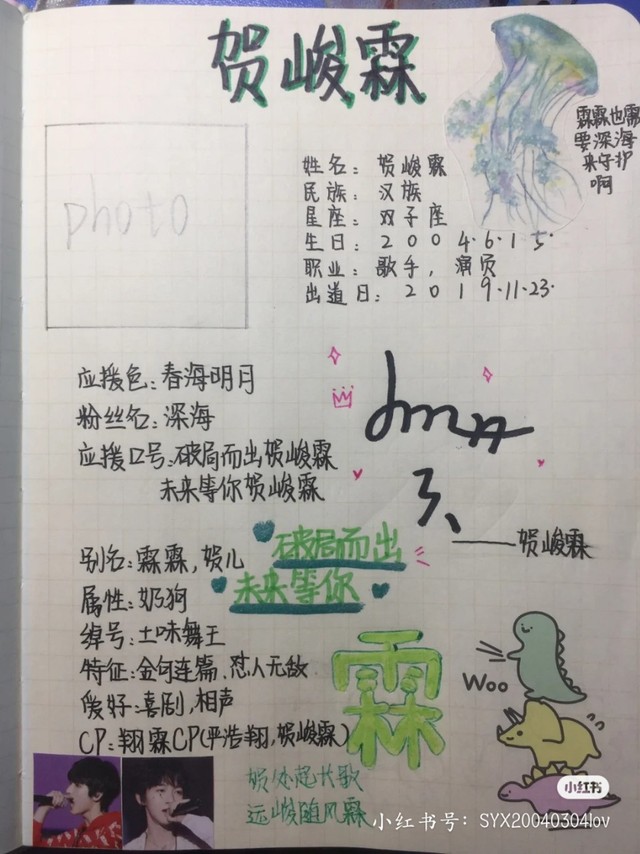 贺峻霖
霖霖也需
要深海
来守护
啊
photo
姓名：贺峻霖
民族：汉族
星座：双子座
生日：2004.6.15.
职业：歌手，演员
出道日：2019.11.23.
应援色：春海明月
粉丝名：深海
应援口号：破局而出贺峻霖
未来等你贺峻霖
——贺峻霖
别名：霖霖，贺儿
破局而出
未来等你
属性：奶狗
绰号：土味舞王
特征：金句连篇，怼人无敌
爱好：喜剧，相声
CP：翔霖CP(严浩翔，贺峻霖)
霖
Woo
贺处起长歌
远峻随风霖
小红书
小红书号：SYX20040304lov